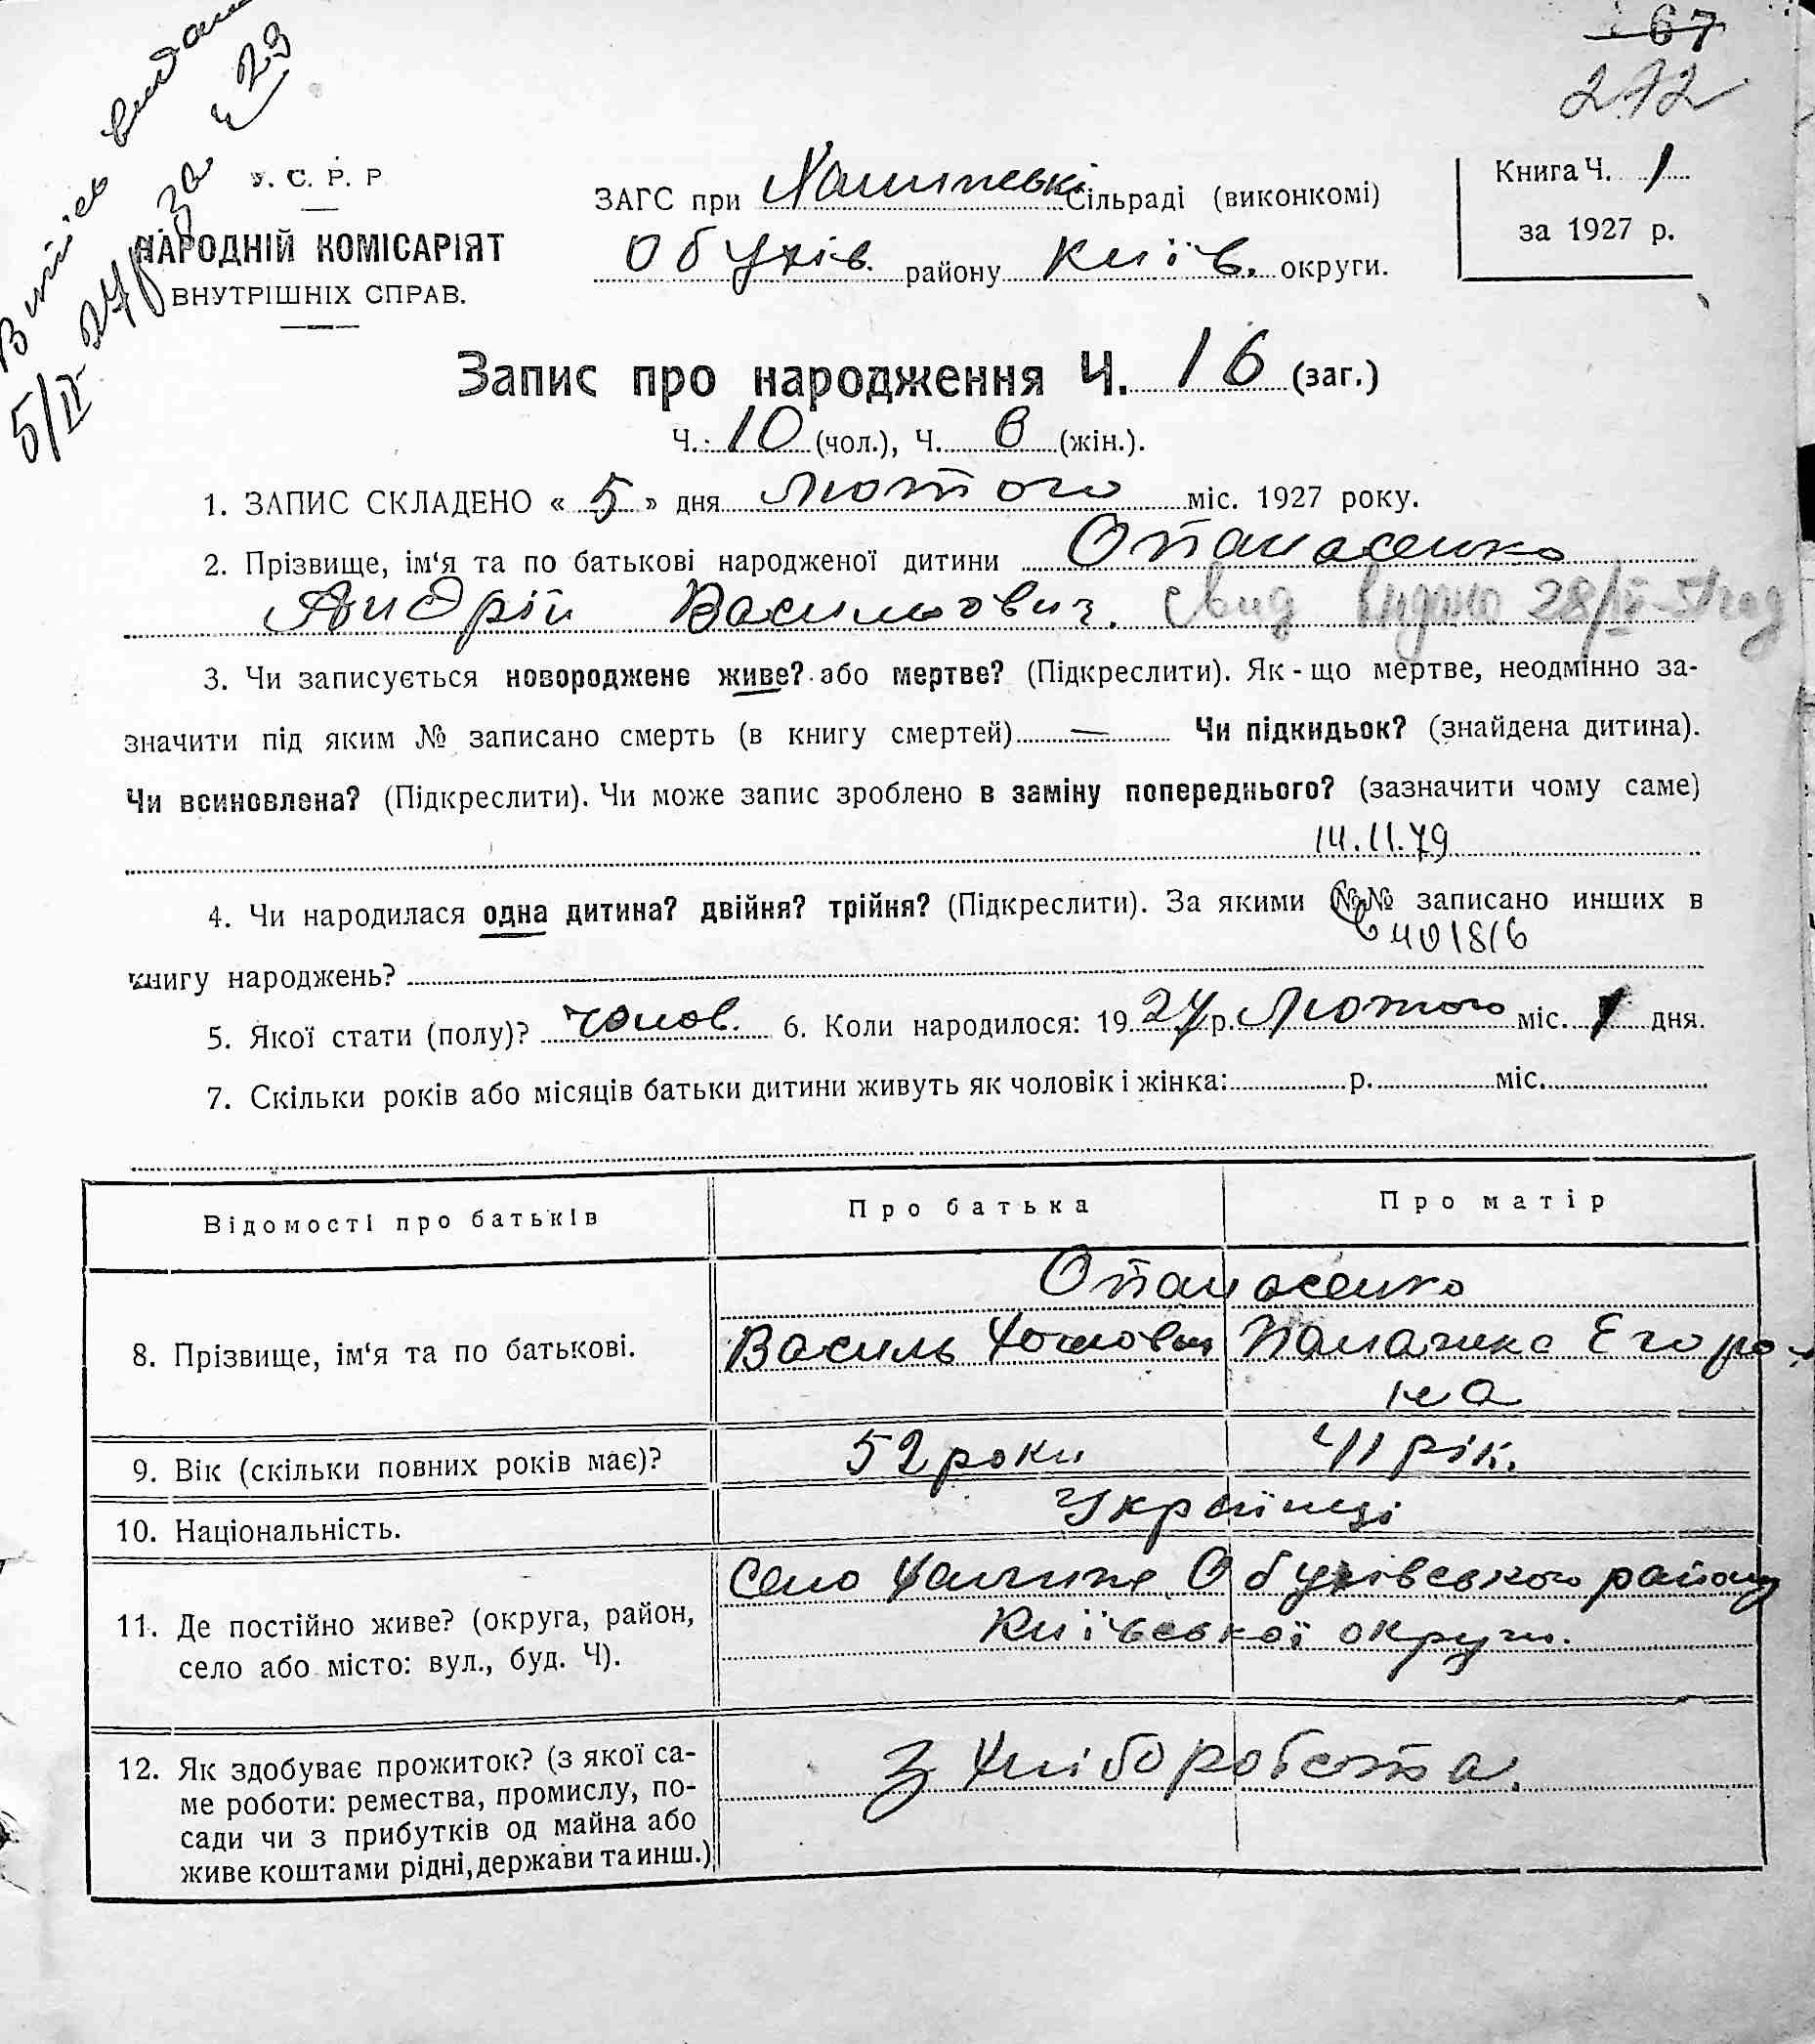 67
272
Витісь видан
5/II 24р за ч 23
У. С. Р. Р
НАРОДНІЙ КОМІСАРІЯТ
ВНУТРІШНІХ СПРАВ.
ЗАГС при Халипські Сільраді (виконкомі)
Обухів. району Київ. округи.
Книга Ч. 1
за 1927 р.
Запис про народження Ч. 16 (заг.)
Ч. 10 (чол.), Ч. 6 (жін.).
1. ЗАПИС СКЛАДЕНО « 5 » дня лютого міс. 1927 року.
2. Прізвище, ім‘я та по батькові народженої дитини Опанасенко
Андрій Васильович. Свид видано 28/
3. Чи записується новороджене живе? або мертве? (Підкреслити). Як - що мертве, неодмінно за-
значити під яким № записано смерть (в книгу смертей) — Чи підкидьок? (знайдена дитина).
Чи всиновлена? (Підкреслити). Чи може запис зроблено в заміну попереднього? (зазначити чому саме)
14.11.79
4. Чи народилася одна дитина? двійня? трійня? (Підкреслити). За якими №№ записано инших в
401816
книгу народжень?
5. Якої стати (полу)? чолов. 6. Коли народилося: 1927 р. Лютого міс. 1 дня.
7. Скільки років або місяців батьки дитини живуть як чоловік і жінка: р. міс.
Відомості про батьків Про батька Про матір
Опанасенко
8. Прізвище, ім‘я та по батькові. Василь Хомович Палажка Егоро-
на
9. Вік (скільки повних років має)? 52 роки 41 рік.
10. Національність. Українці
11. Де постійно живе? (округа, район, село або місто: вул., буд. Ч). Село Халипє Обухівського району
Київської округи.
12. Як здобуває прожиток? (з якої са- З хліборобства.
ме роботи: ремества, промислу, по-
сади чи з прибутків од майна або
живе коштами рідні, держави та инш.)